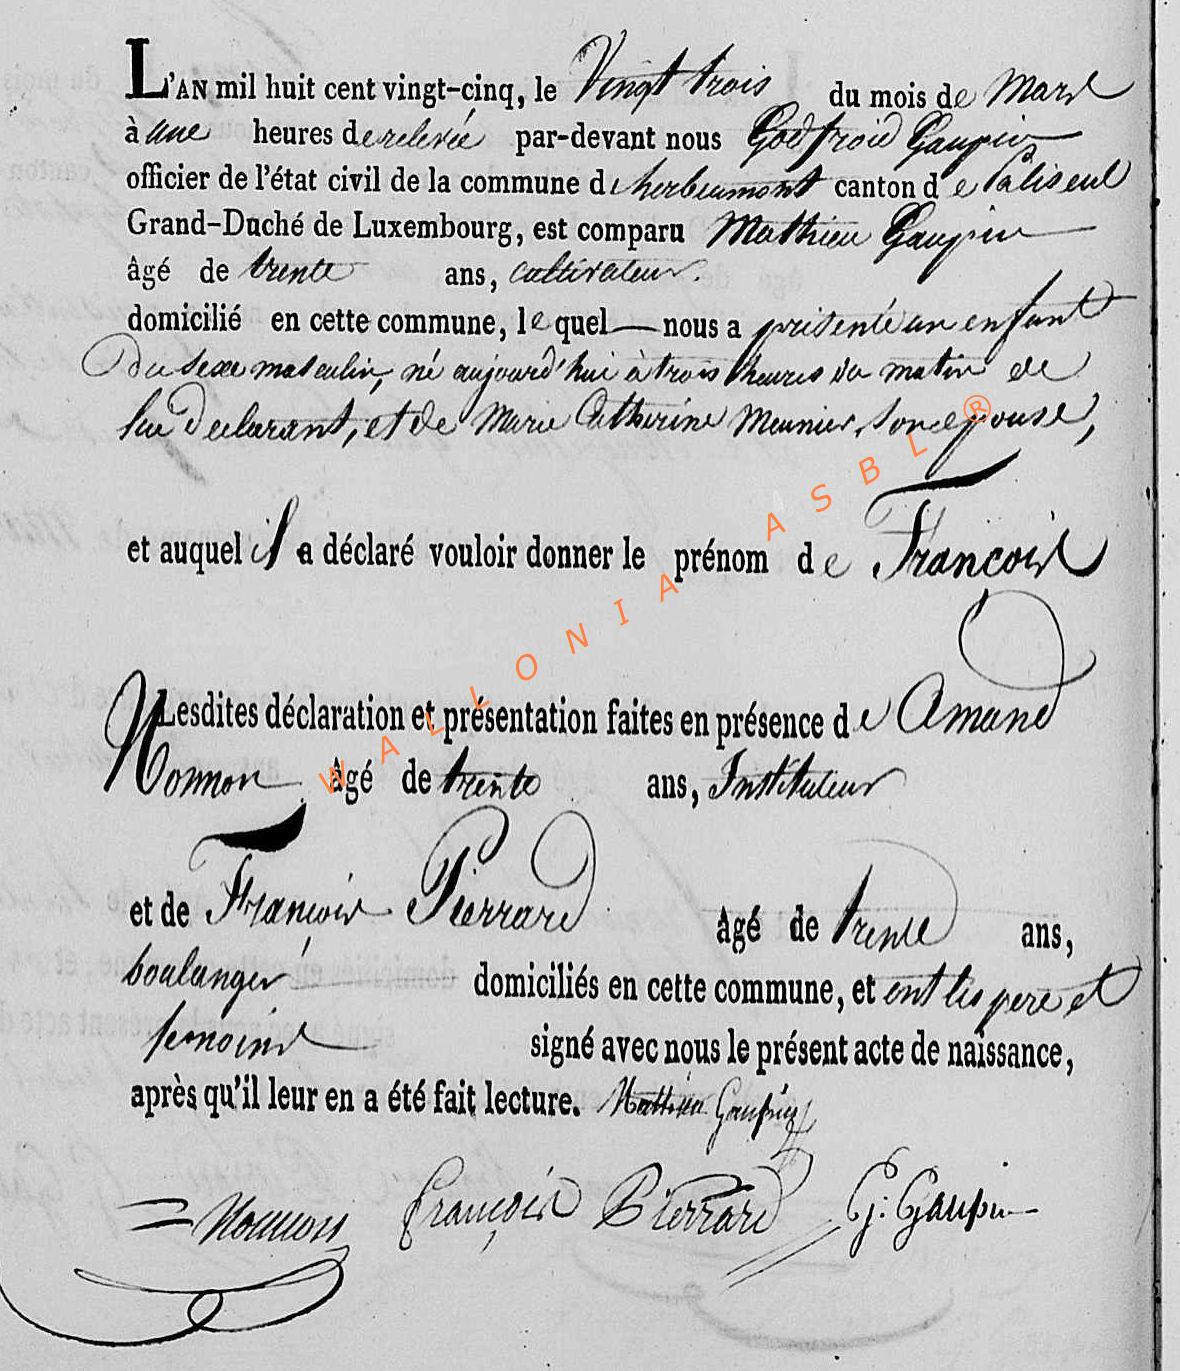 L'AN mil huit cent vingt-cinq, le Vingt trois du mois de Mars
à une heures de relevée par-devant nous Godfroid Gaupin
officier de l'état civil de la commune de herbeumont canton de Paliseul
Grand-Duché de Luxembourg, est comparu Mathieu Gaupin
âgé de trente ans, cultivateur.
domicilié en cette commune, lequel nous a présenté un enfant
du sexe masculin, né aujourd'hui à trois heures du matin de
lui Declarant, et de Marie Catherine Meunier, son epouse,
et auquel il a déclaré vouloir donner le prénom de Francois
Lesdites déclaration et présentation faites en présence de Amand
Nonnon âgé de trente ans, Instituteur
et de François Pierrard âgé de trente ans,
boulanger domiciliés en cette commune, et ont les pere et
temoins signé avec nous le présent acte de naissance,
après qu'il leur en a été fait lecture. Mathieu Gaupin
Nonnon François Pierrard G: Gaupin
WALLONIA ASBL ®